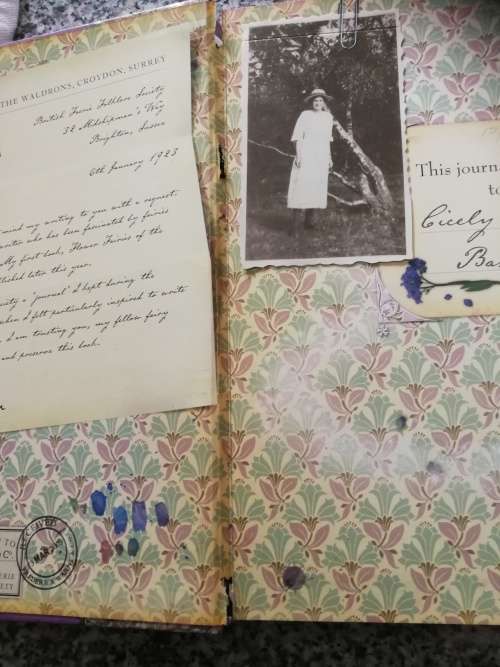 THE WALDRONS, CROYDON, SURREY
British Fairie Folklore Society
32 Midshipmen's Way
Brighton, Sussex
6th January 1923
mind my writing to you with a request.
who has been fascinated by fairies
My first book, Flower Fairies of the
later this year.
a 'journal' I kept during the
when I felt particularly inspired to write
I am trusting you, my fellow fairy
and preserve this book.
This journ
to
Cicely
Ba
TO
Co.
ERIE
ETY